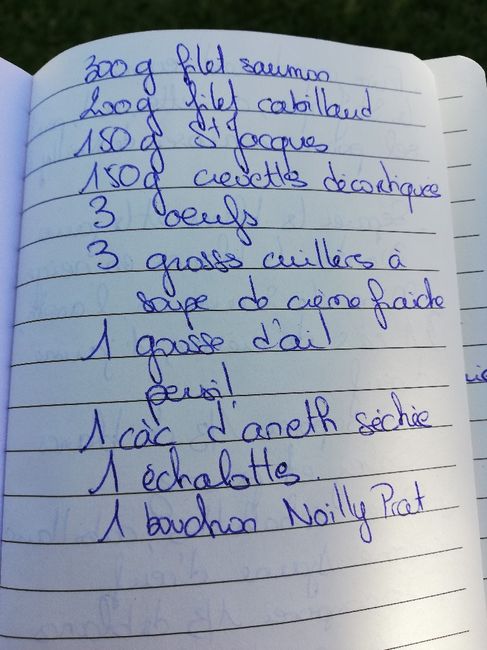 300g filet saumon
200g filet cabillaud
150g St Jacques
150g crevettes décortiques
3 oeufs
3 grosses cuillères à
soupe de crème fraiche
1 gousse d'ail
persil
1 càc d'aneth séchée
1 échalottes.
1 bouchon Noilly Prat